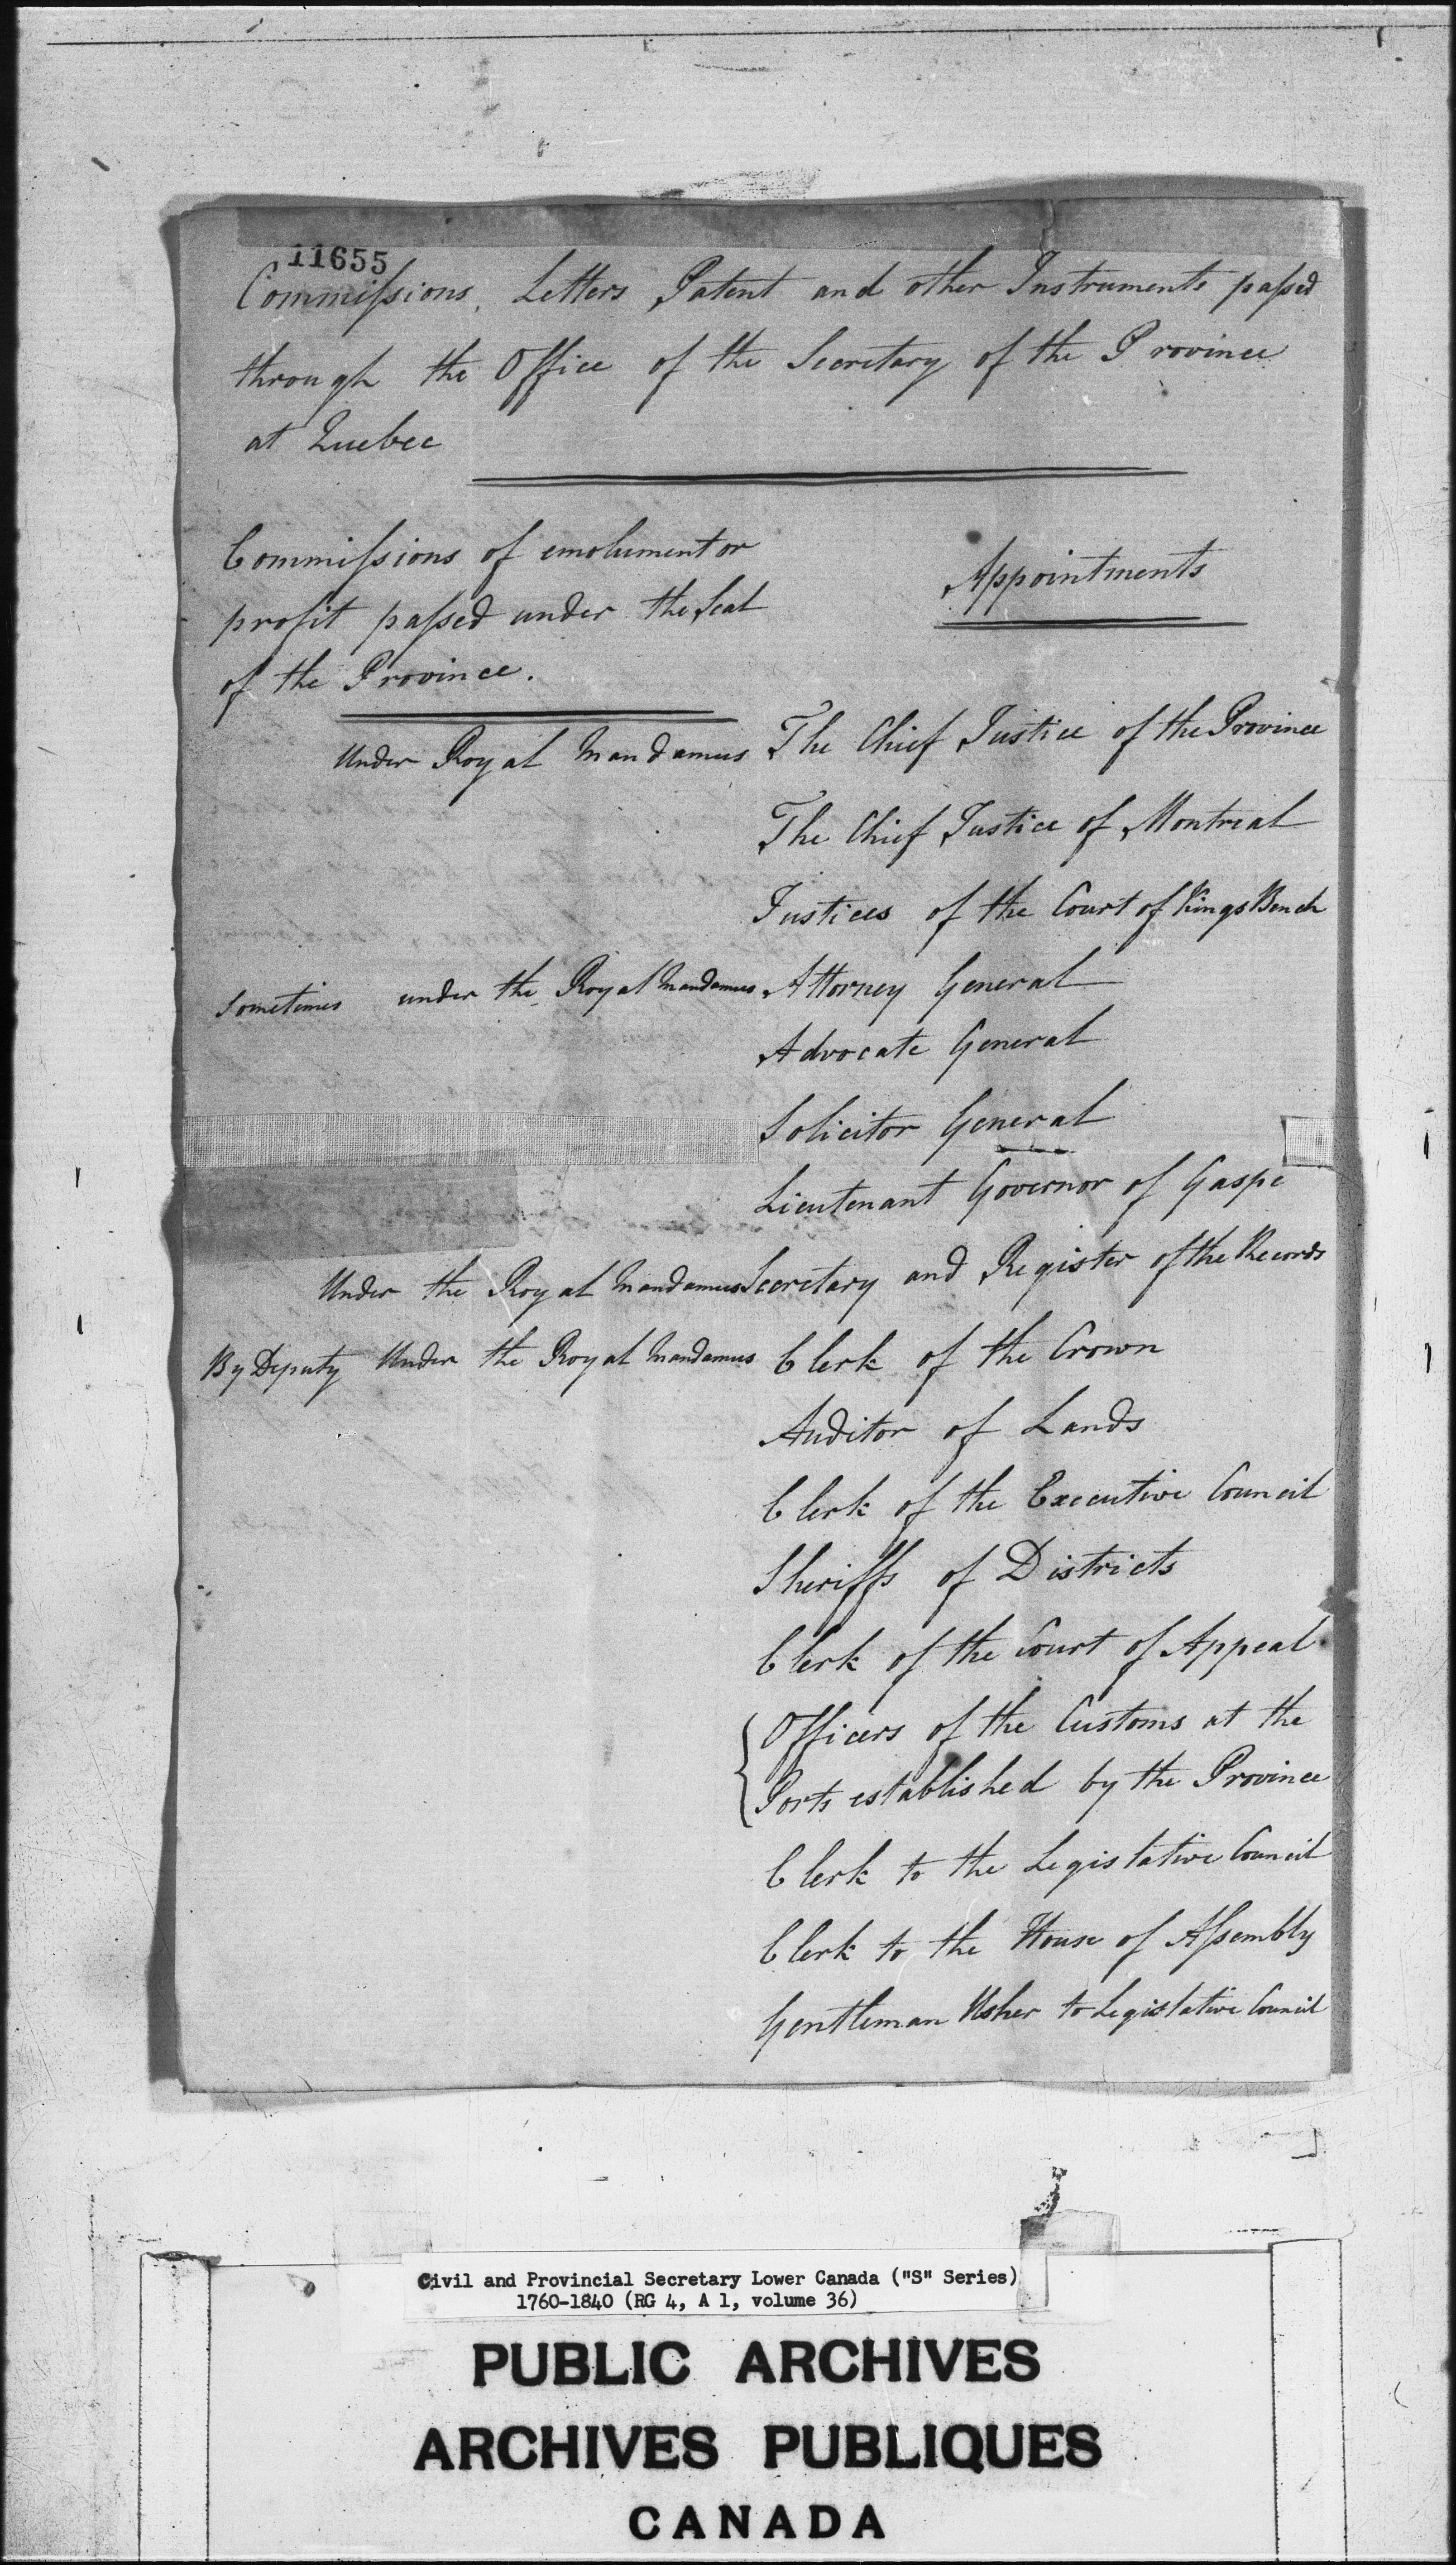 11655
Commissions, Letters Patent and other Instruments passed
through the Office of the Secretary of the Province
at Quebec
Commissions of emolument or
profit passed under the Seal
of the Province.
Appointments
Under Royal Mandamus The Chief Justice of the Province
The Chief Justice of Montreal
Justices of the Court of Kings Bench
Sometimes under the Royal Mandamus Attorney General
Advocate General
Solicitor General
Lieutenant Governor of Gaspe
Under the Royal Mandamus Secretary and Register of the Records
By Deputy Under the Royal Mandamus Clerk of the Crown
Auditor of Lands
Clerk of the Executive Council
Sheriffs of Districts
Clerk of the Court of Appeal
Officers of the Customs at the
Ports established by the Province
Clerk to the Legislative Council
Clerk to the House of Assembly
Gentleman Usher to Legislative Council
Civil and Provincial Secretary Lower Canada ("S" Series)
1760-1840 (RG 4, A 1, volume 36)
PUBLIC ARCHIVES
ARCHIVES PUBLIQUES
CANADA